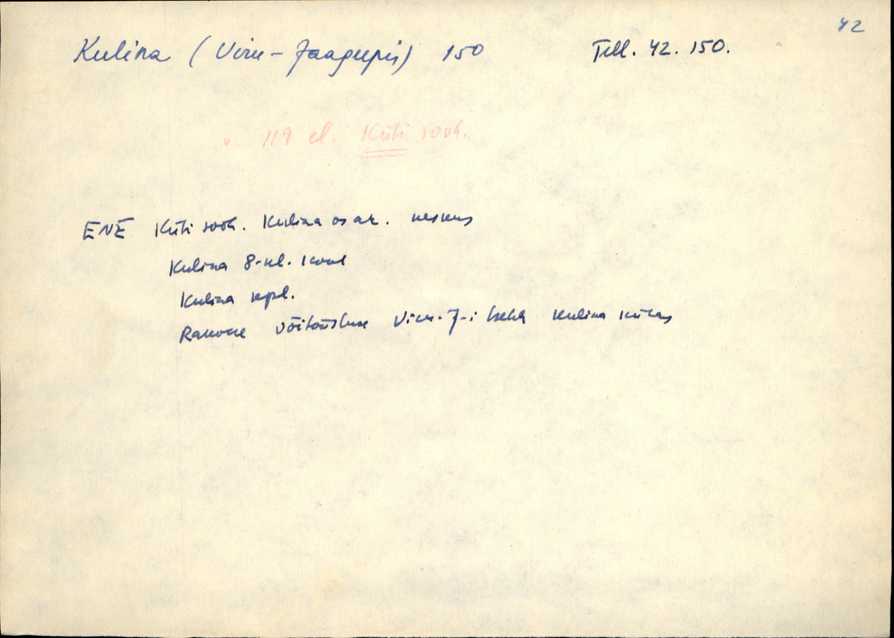 42
Kulina (Viru-Jaagupis) 150 Tell. 42. 150.
v. 119 el. Küti sooh.
ENE Küti sovh. Kulina osak. keskus
Kulina 8-kl. kool
Kulina kpl.
Rakvere Viru-J-i Kulina külas